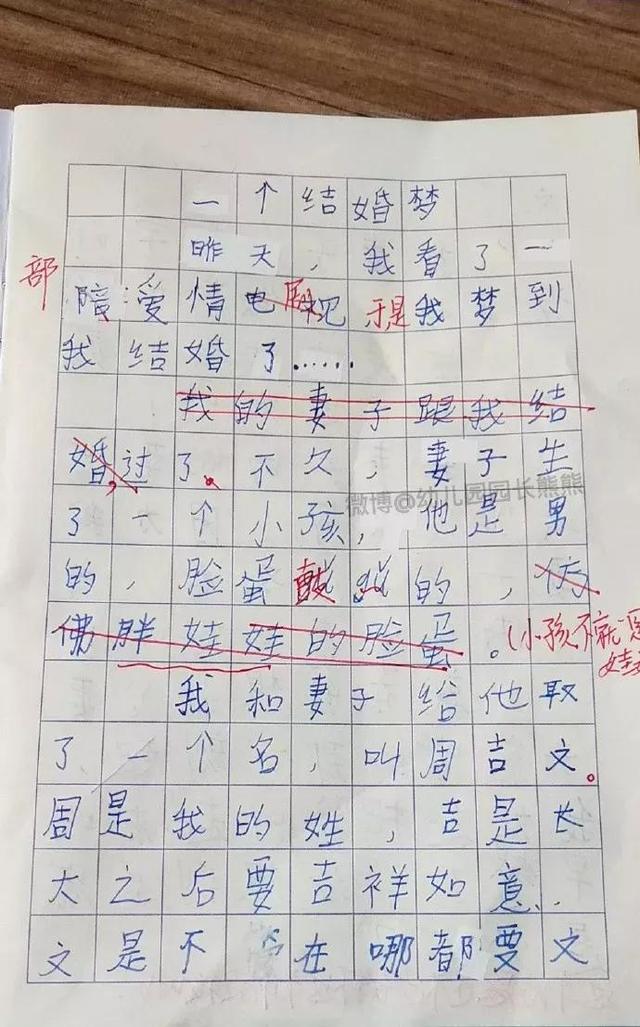 一个结婚梦
昨天，我看了一
部
陪爱情电视剧 于是我梦到
我结婚了……
我的妻子跟我结
婚，过了。不久，妻子生
微博@幼儿园园长熊熊
了一个小孩，他是男
的，脸蛋鼓鼓的，仿
佛胖娃娃的脸蛋。(小孩不就是
娃
我和妻子给他取
了一个名，叫周吉文。
周是我的姓，吉是长
大之后要吉祥如意，
文是不 在哪都要文